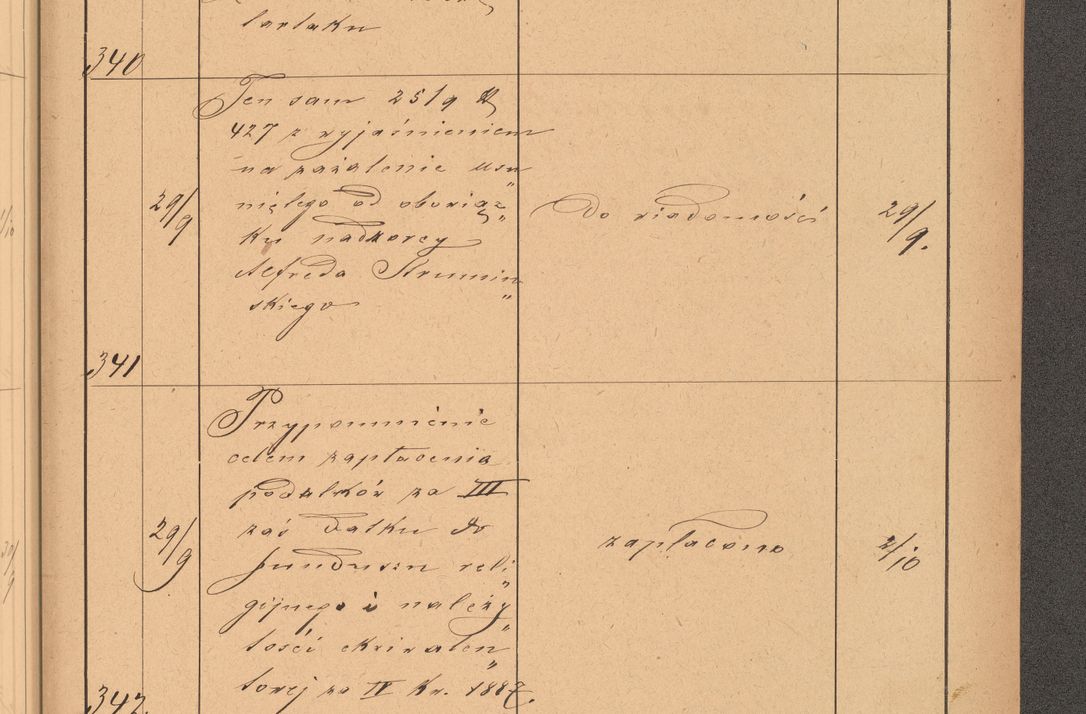 tartaku
340
Ten sam 25/9 N
427 z wyjaśnieniem
na zażalenie usu„
niętego od obowiąz„
ku nadzorcy
Alfreda Krumin„
skiego
29/9
Do wiadomości
29/9.
341
Przypomnienie
celem zapłacenia
podatków za III
zaś datku do
funduszu reli„
gijnego i należy„
tości ekwiwalen„
towej za IV kw. 1887.
29/9
zapłacono
2/10
342.